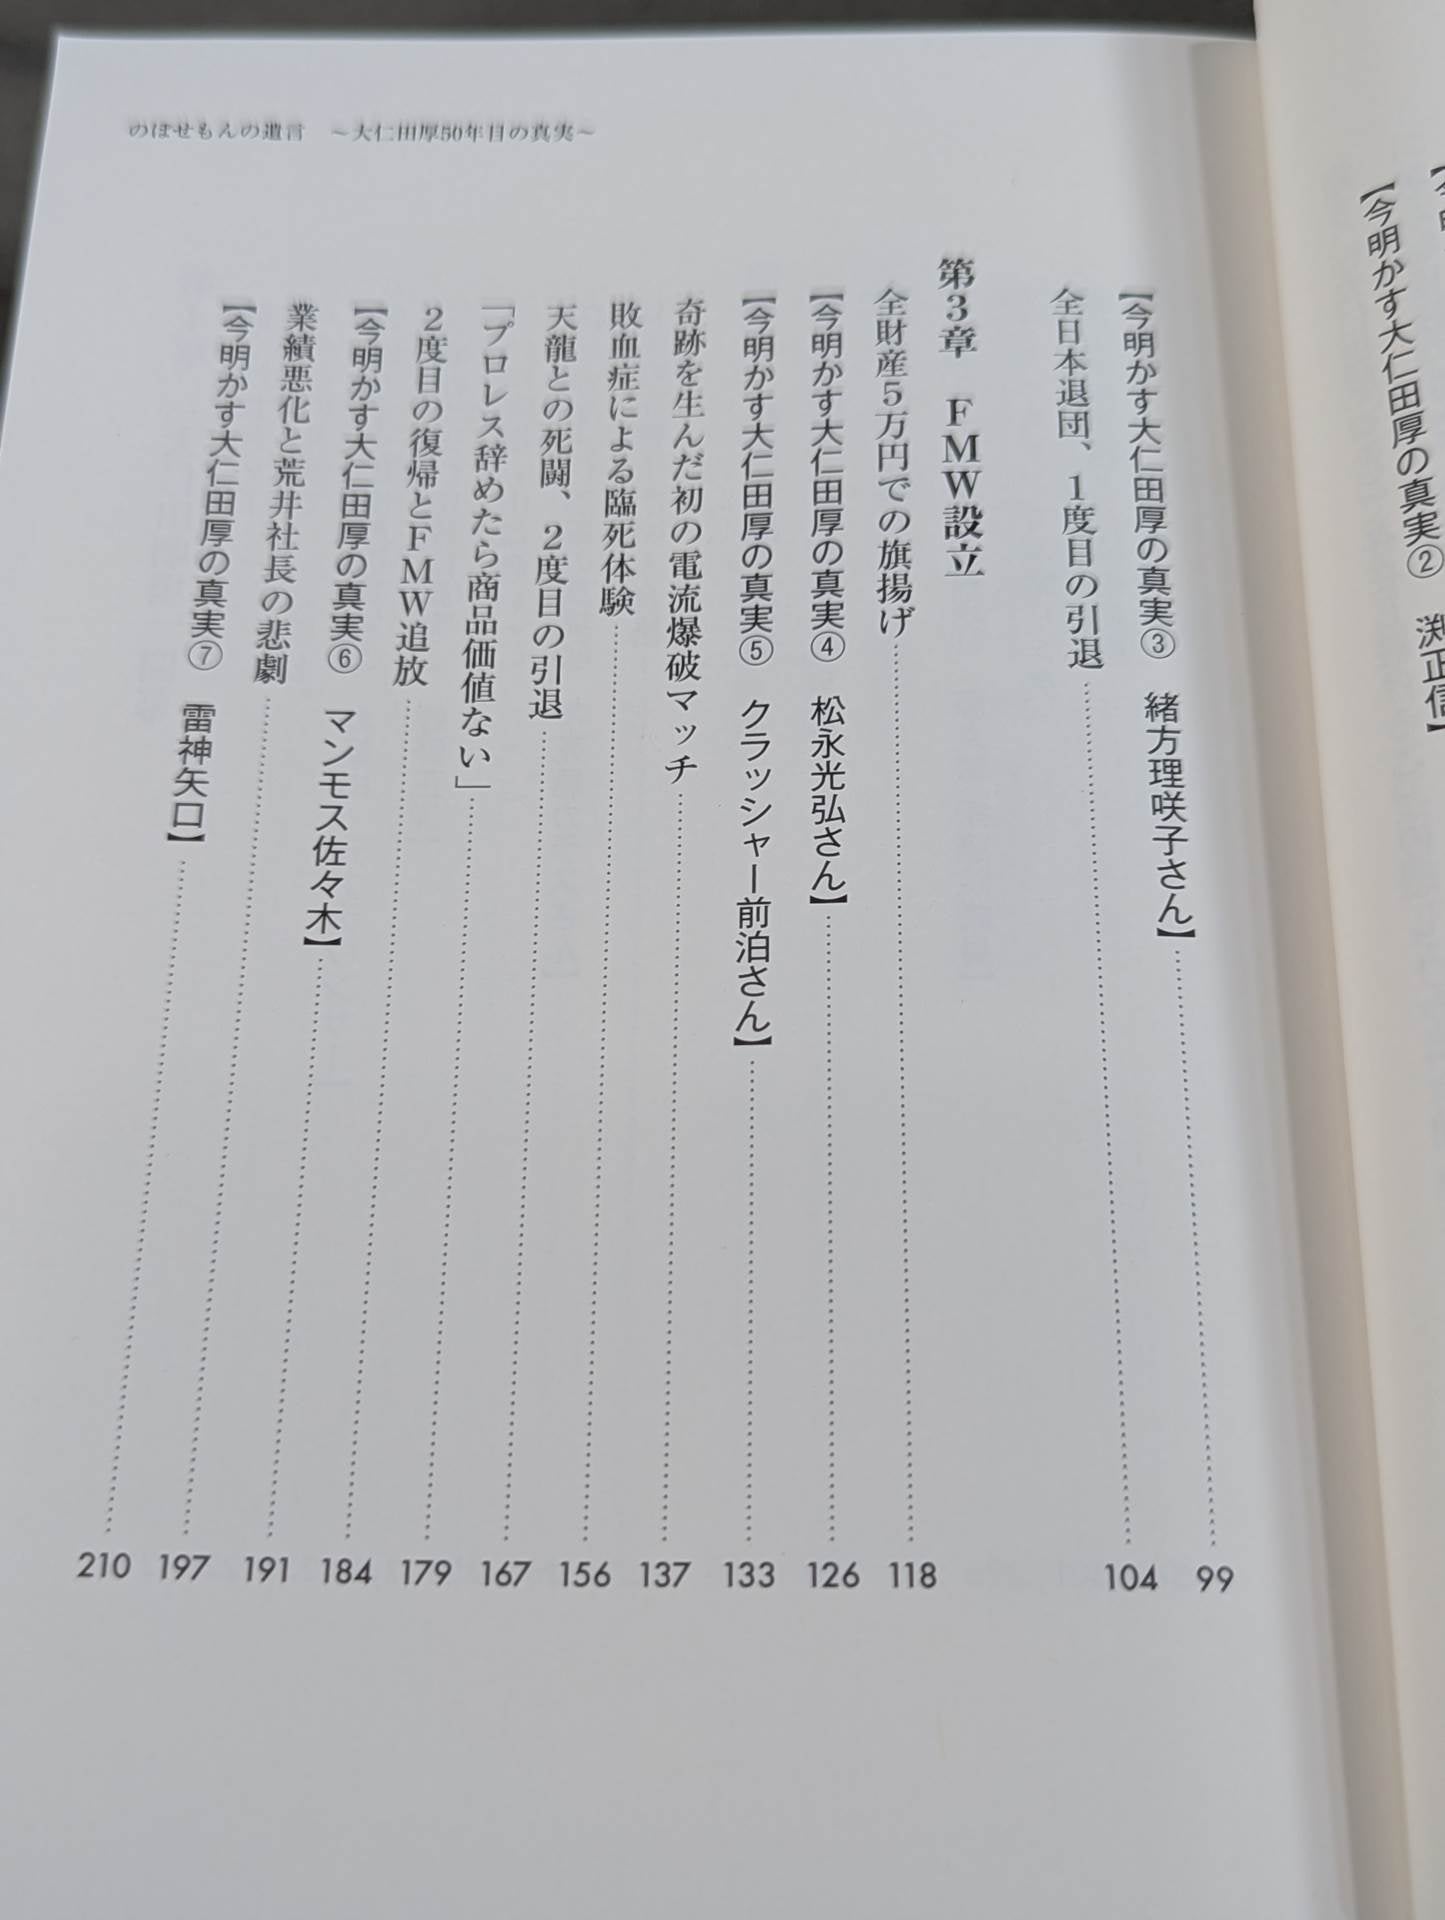 のぼせもんの遺言　～大仁田厚50年目の真実～
【今明かす大仁田厚の真実②　渕正信】
【今明かす大仁田厚の真実③　緒方理咲子さん】 99
全日本退団、1度目の引退 104
第3章　FMW設立
全財産5万円での旗揚げ 118
【今明かす大仁田厚の真実④　松永光弘さん】 126
【今明かす大仁田厚の真実⑤　クラッシャー前泊さん】 133
奇跡を生んだ初の電流爆破マッチ 137
敗血症による臨死体験 156
天龍との死闘、2度目の引退 167
「プロレス辞めたら商品価値ない」 179
2度目の復帰とFMW追放 184
【今明かす大仁田厚の真実⑥　マンモス佐々木】 191
業績悪化と荒井社長の悲劇 197
【今明かす大仁田厚の真実⑦　雷神矢口】 210